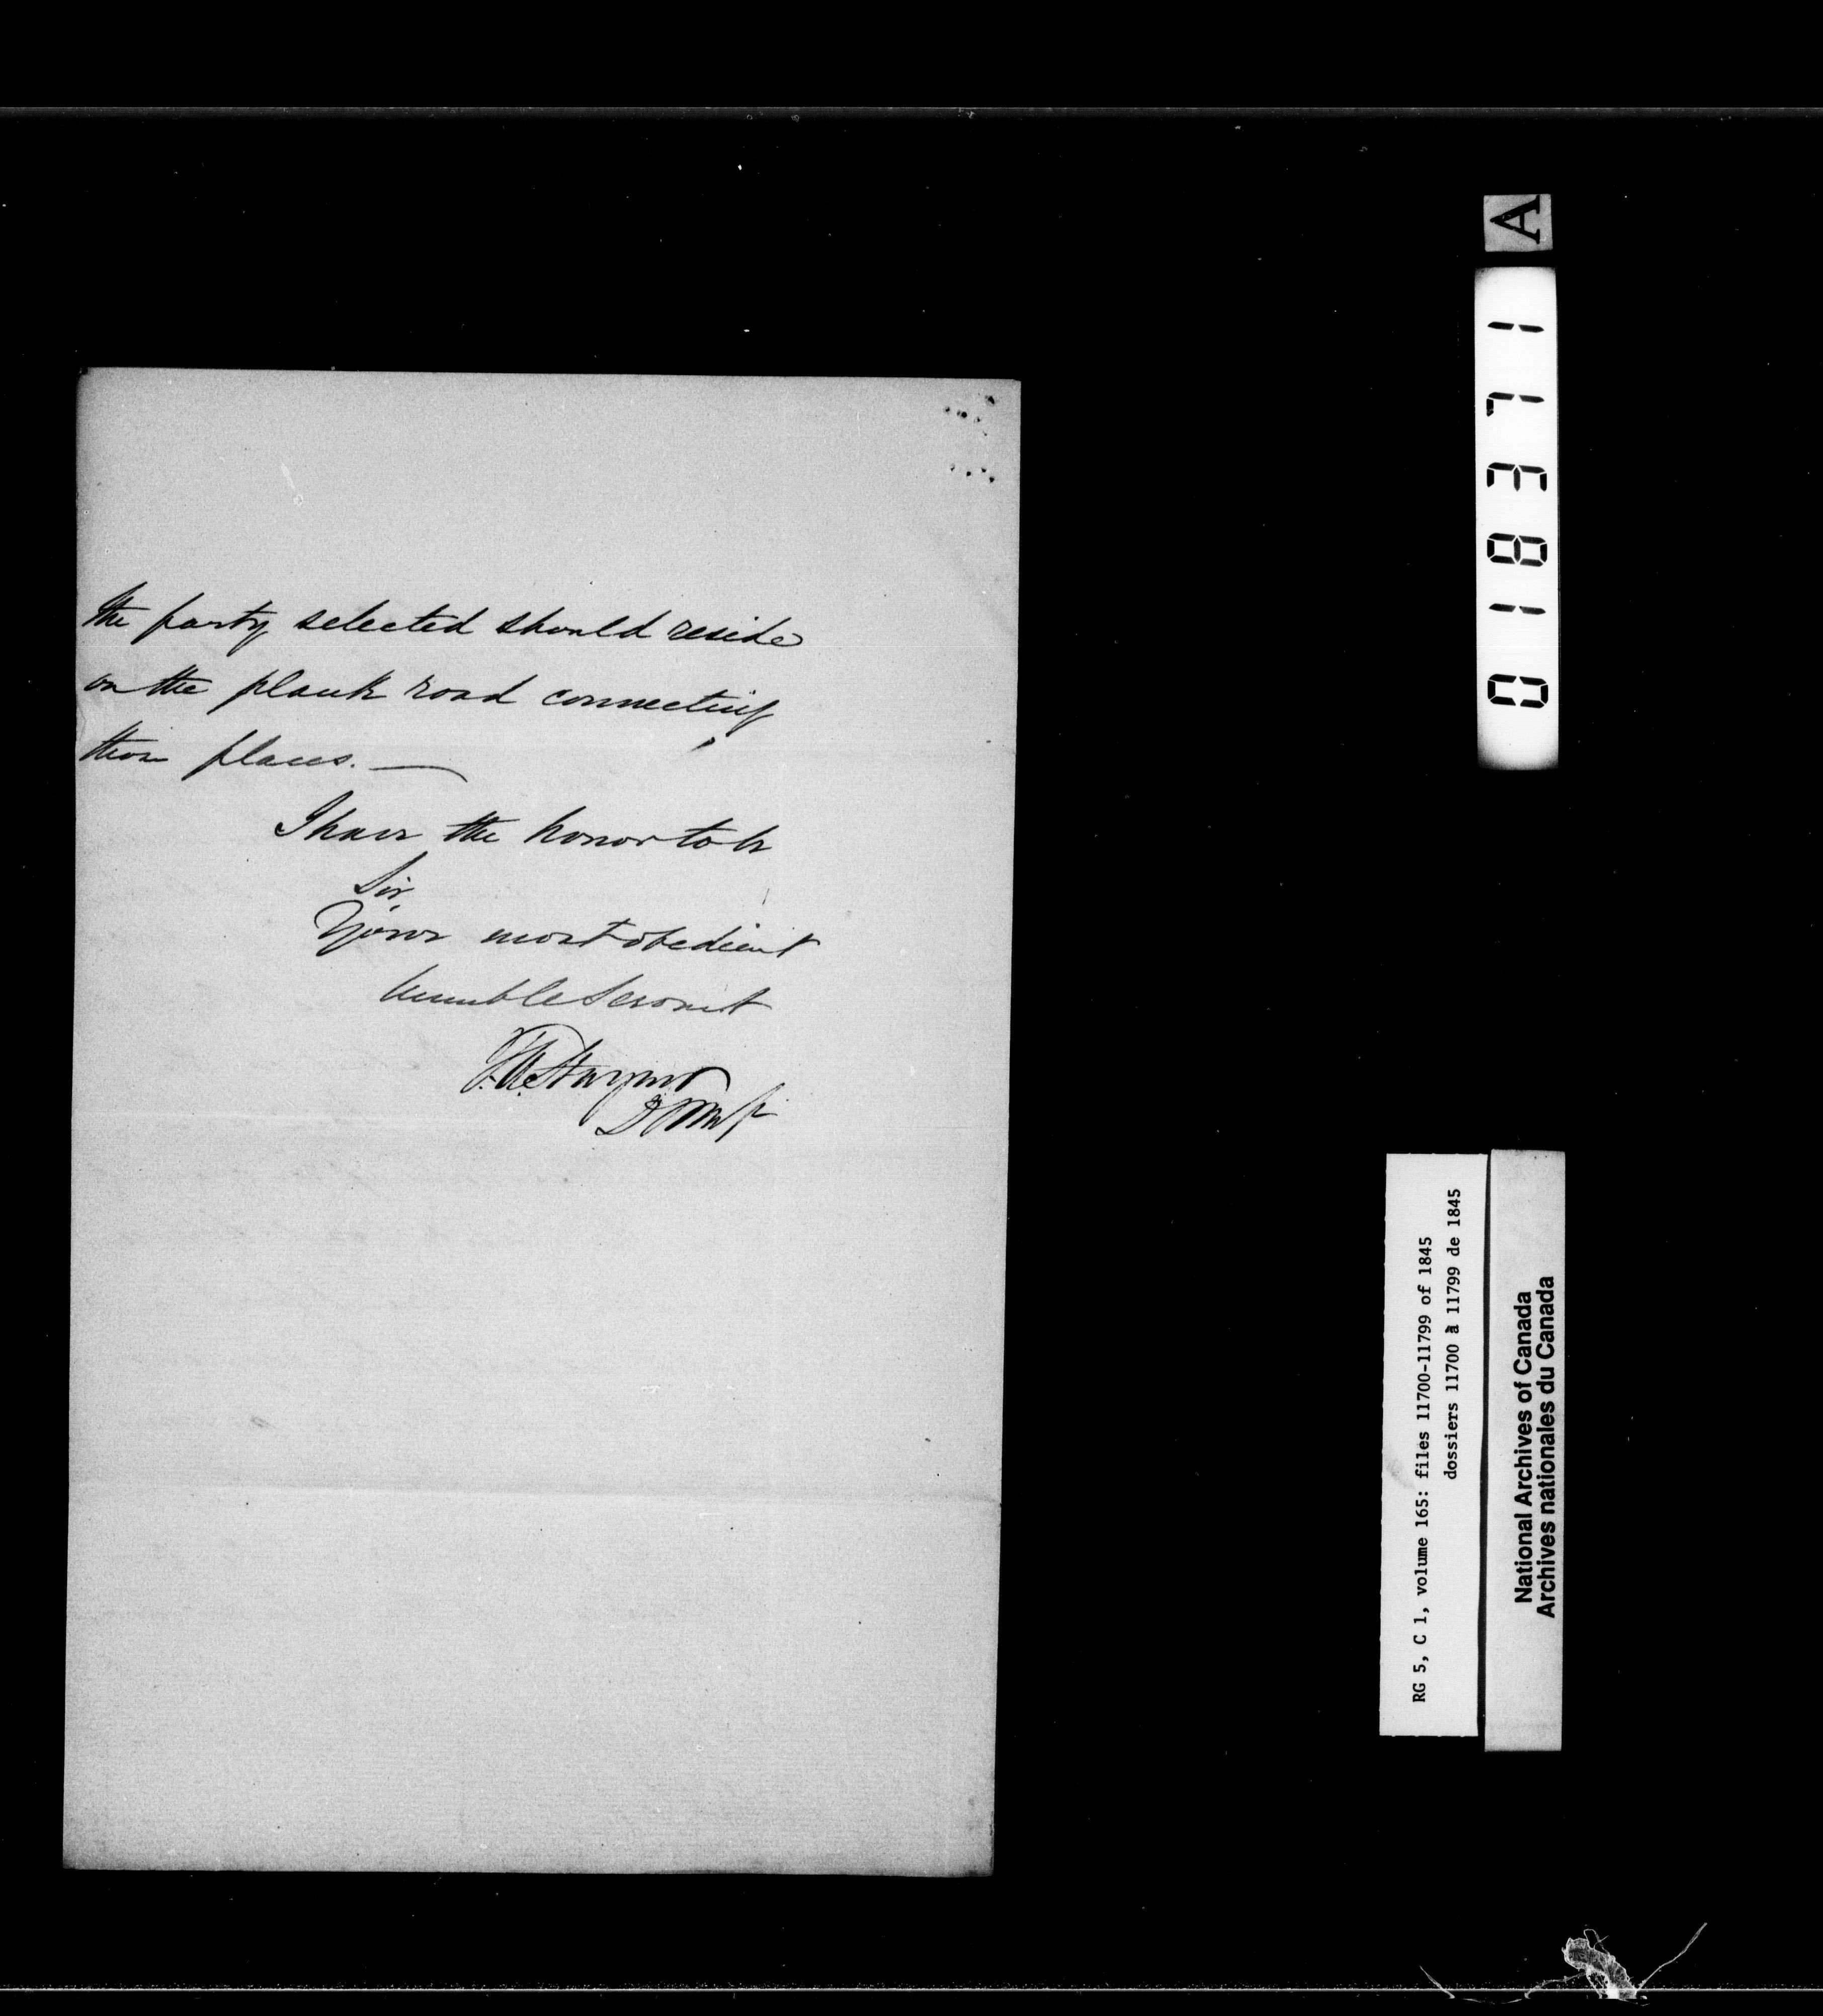 the party selected should reside
on the plank road connecting
those places. —
I have the honor to be
Sir,
Your most obedient
humble Servant
T.A. Stayner
D P M G
A
018371
RG 5, C 1, volume 165: files 11700-11799 of 1845
dossiers 11700 à 11799 de 1845
National Archives of Canada
Archives nationales du Canada